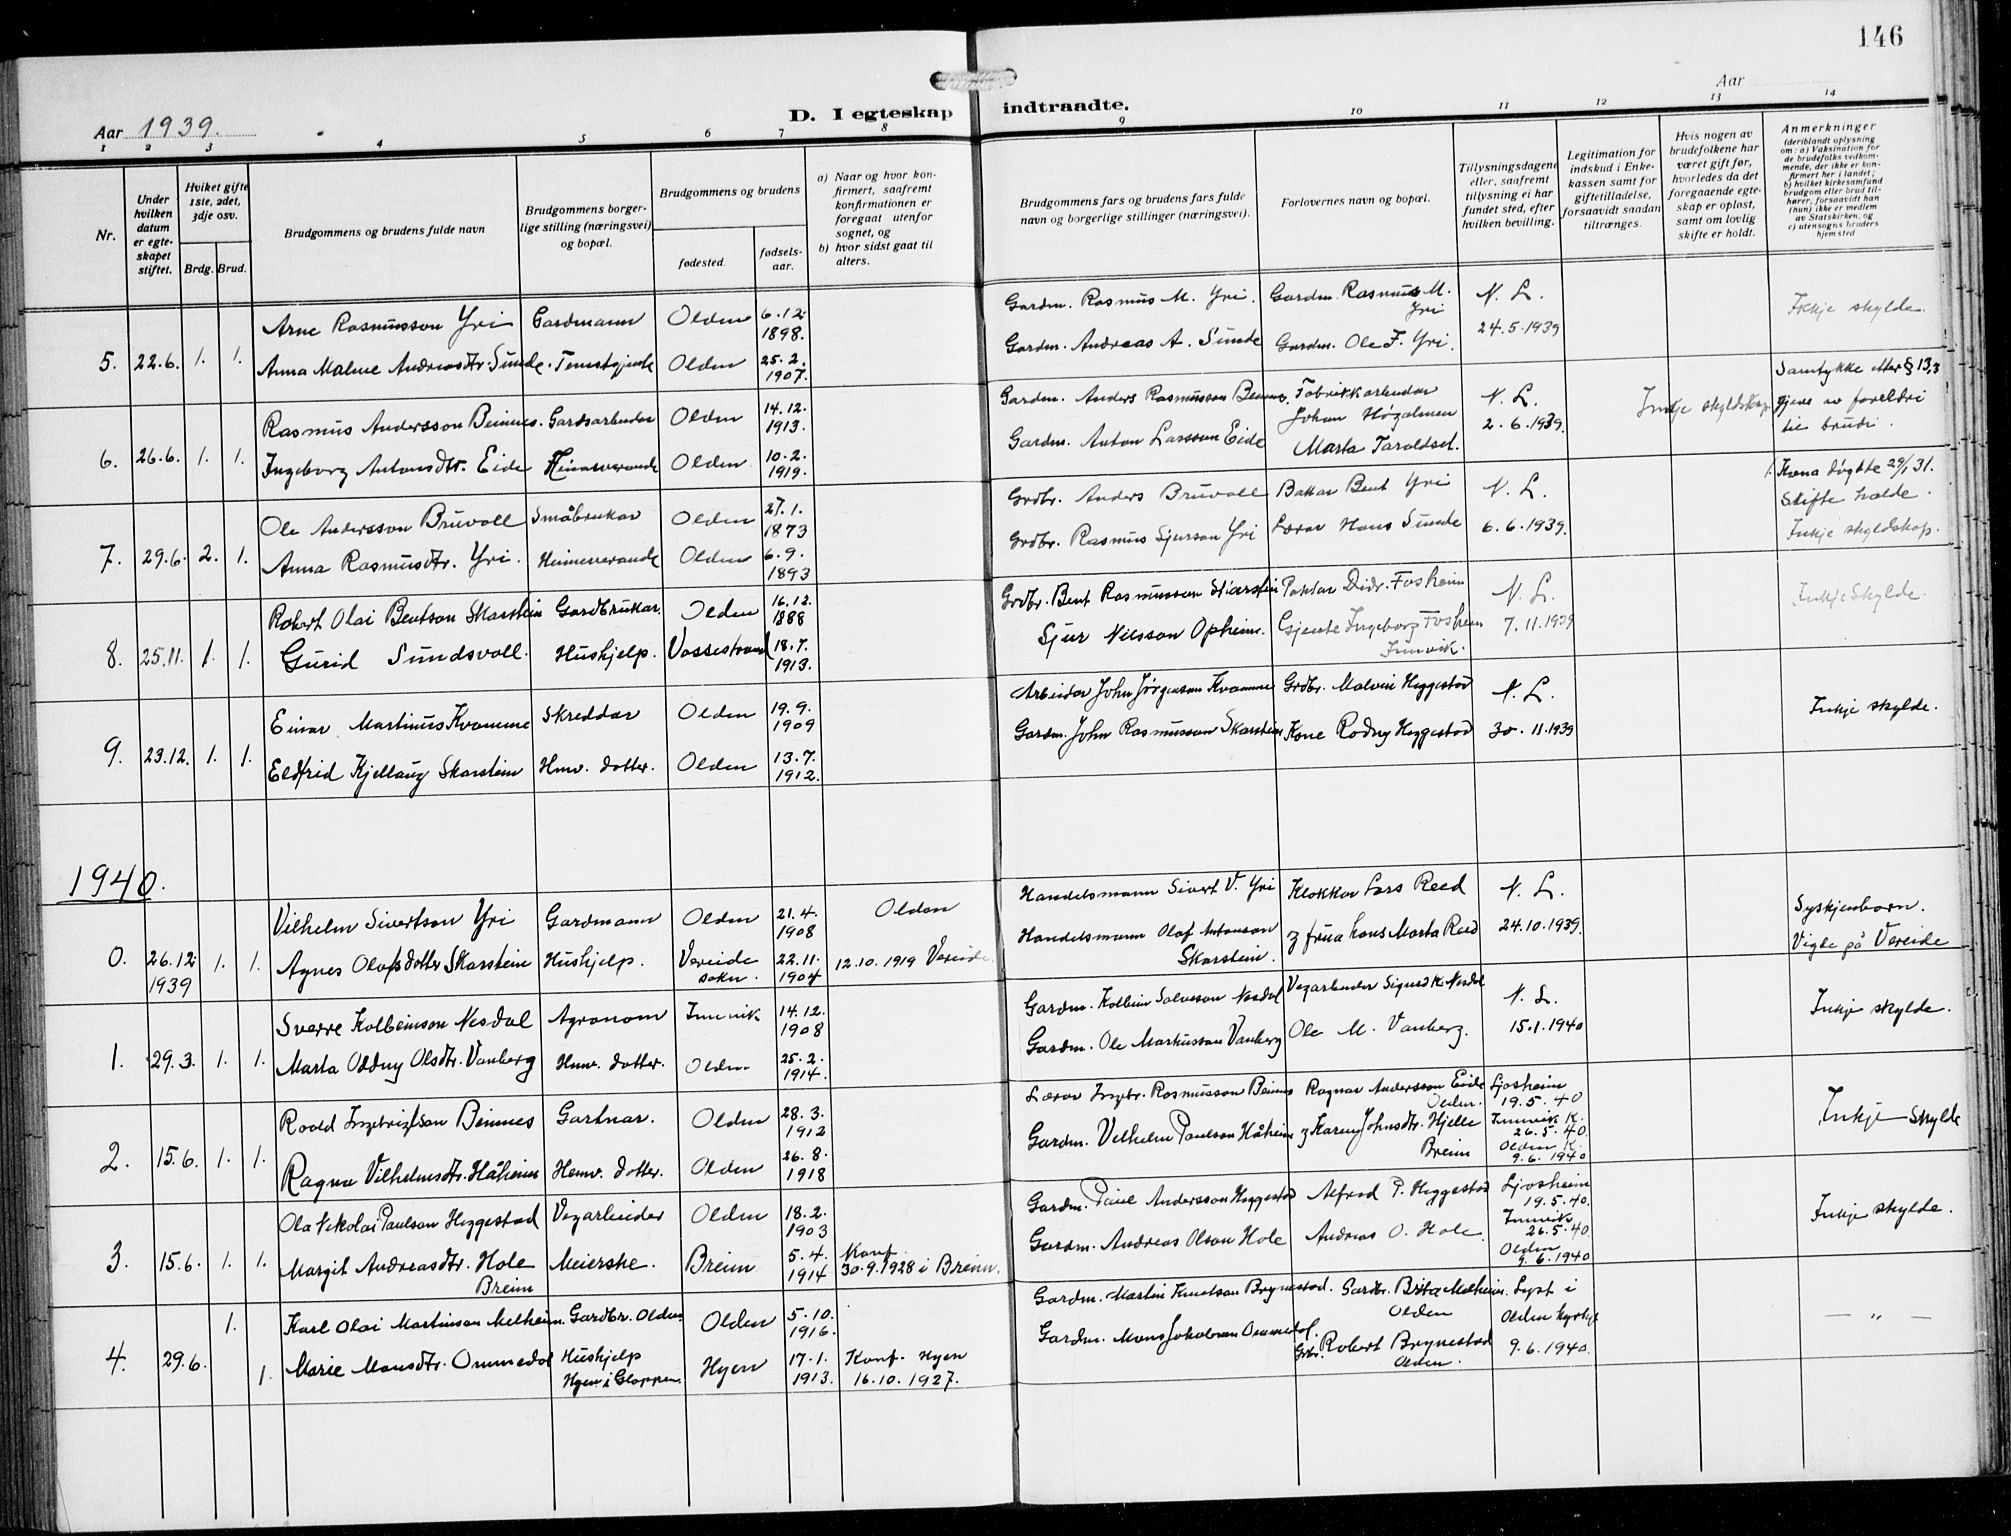 146
Aar 1939.
D. I egteskap indtraadte.
Aar
1 2 3 4 5 6 7 8 9 10 11 12 13 14
Nr.
Under hvilken datum er egteskapet stiftet.
Hviket gifte 1ste, 2det, 3dje osv.
Brdg. Brud.
Brudgommens og brudens fulde navn
Brudgommens borgerlige stilling (næringsvei) og bopæl.
Brudgommens og brudens
fødested.
fødselsaar.
a) Naar og hvor konfirmert, saafremt konfirmationen er foregaat utenfor sognet, og
b) hvor sidst gaat til alters.
Brudgommens fars og brudens fars fulde navn og borgerlige stillinger (næringsvei).
Forlovernes navn og bopæl.
Tillysningsdagene eller, saafremt tillysning ei har fundet sted, efter hvilken bevilling.
Legitimation for indskud i Enkekassen samt for giftetilladelse, forsaavidt saadan tiltrænges.
Hvis nogen av brudefolkene har været gift før, hvorledes da det foregaaende egteskap er opløst, samt om lovlig skifte er holdt.
Anmerkninger (deriblandt oplysning om: a) Vaksination for de brudefolks vedkommende, der ikke er konfirmert her i landet; b) hvilket kirkesamfund brudgom eller brud tilhører, forsaavidt han (hun) ikke er medlem av Statskirken, og c) utensogns bruders hjemsted
Arne Rasmusson Yri Gardmann Olden 6.12. 1898. Gardm. Rasmus M. Yri. Gardm. Rasmus M. Yri N. L. Ikkje skylde.
5. 22.6. 1. 1. Anna Malene Andreasdtr. Sunde. Tenestgjente Olden 25.2. 1907. Gardm. Andreas A. Sunde Gardm. Ole F. Yri. 24.5.1939
Rasmus Andersson Beinnes. Gardsarbeidar Olden 14.12. 1913. Gardm. Anders Rasmusson Beinnes. Fabrikkarbeidar Johan Høgalmen N. L. Inkje skyldskap Samtykke etter § 13,3 gjeve av foreldri til brudi.
6. 26.6. 1. 1. Ingeborg Antonsdtr. Eide Heimeverande Olden 10.2. 1919. Gardm. Anton Larsson Eide Marta Taraldset. 2.6.1939.
Ole Andersson Bruvoll Småbrukar Olden 27.1. 1873 Grdbr. Anders Bruvoll Bakar Bent Yri N. L. 1. Kona døydde 29/1 31. Skifte halde.
7. 29.6. 2. 1. Anna Rasmusdtr. Yri. Heimeverande Olden 6.9. 1893 Grdbr. Rasmus Sjurson Yri Lærar Hans Sunde 6.6.1939. Inkje skyldskap.
Robert Olai Bentson Skarstein Gardbrukar. Olden 16.12. 1888 Grdbr. Bent Rasmusson Skarstein Doktar Didr. Fosheim N. L. Inkje Skylde.
8. 25.11. 1. 1. Gurid Sundsvoll. Hushjelp. Vossestrand 18.7. 1913. Sjur Nilsson Opheim. Gjente Ingeborg Fosheim Innvik. 7.11.1939
Einar Martinus Kvamme Skreddar Olden 19.9. 1909 Arbeidar John Jørgenson Kvamme Grdbr. Malvin Heggestad N. L. Inkje skylde.
9. 23.12. 1. 1. Eldfrid Kjellaug Skarstein Hmv. dotter. Olden 13.7. 1912. Gardm. John Rasmusson Skarstein Kone Rodny Heggestad 30.11.1939
1940.
Vilhelm Sivertson Yri Gardmann Olden 21.4. 1908 Olden Handelsmann Sivert V. Yri Klokkar Lars Reed N. L. Syskjenborn.
0. 26.12 1939 1. 1. Agnes Olafsdotter Skarstein Hushjelp. Vereide sokn. 22.11. 1904 12.10.1919 Vereide. Handelsmann Olaf Antonson Skarstein. og frua hans Marta Reed 24.10.1939. Vigde på Vereide
Sverre Kolbeinson Nesdal Agronom Innvik 14.12. 1908 Gardm. Kolbein Salveson Nesdal Vegarbeider Sigurd K. Nesdal N. L. Inkje skylde.
1. 29.3. 1. 1. Marta Oddny Olsdtr. Vanberg Hmv. dotter. Olden. 25.2. 1914. Gardm. Ole Markusson Vanberg Ole M. Vanberg. 15.1.1940
Roald Ingebrigtson Beinnes Gartnar. Olden 28.3. 1912 Lærar Ingbr. Rasmusson Beinnes Ragnar Andersson Eide Olden. Ljosheim 19.5.40 Inkje skylde
2. 15.6. 1. 1. Ragna Vilhelmsdtr. Håheim Hemv. dotter. Olden 26.8. 1918 Gardm. Vilhelm Paulson Håheim og Karen Johnsdtr. Hjelle Breim Innvik K. 26.5.40. Olden K. 9.6.1940
Ola Nikolai Paulson Heggestad Vegarbeider Olden 18.2. 1903 Gardm. Paul Andersson Heggestad Alfred P. Heggestad Ljosheim 19.5.40. Inkje skylde.
3. 15.6. 1. 1. Margit Andreasdtr. Hole Breim Meierske. Breim 5.4. 1914 Konf. 30.9.1928 i Breim. Gardm. Andreas Olson Hole Andreas O. Hole. Innvik 26.5.40. Olden 9.6.1940
1. Karl Olai Martinson Melheim. Gardbr. Olden. Olden 5.10. 1916. Gardm. Martin Knutson Brynestad. Gardbr. Brita Melheim. Olden Lyst i Olden kyrkje — „ —
4. 29.6. 1. Marie Monsdtr. Ommedal Hushjelp Hyen i Gloppen. Hyen 17.1. 1913. Konf. Hyen 16.10.1927. Gardm. Mons Jakobson Ommedal. Grbr. Robert Brynestad Olden. 9.6.1940.